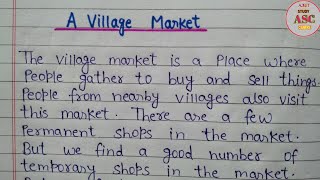 A Village Market
STUDY
ASC
The village market is a Place where
People gather to buy and sell things.
People from nearby villages also visit
this market. There are a few
Permanent shops in the market.
But we find a good number of
temporary shops in the market.